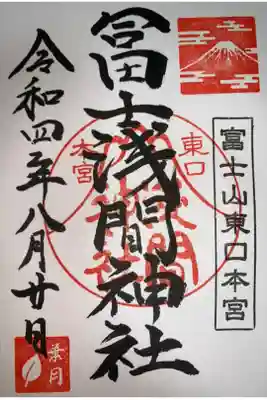 富士山東口本宮
冨士浅間神社
東口
本宮
令和四年八月廿日
葉月